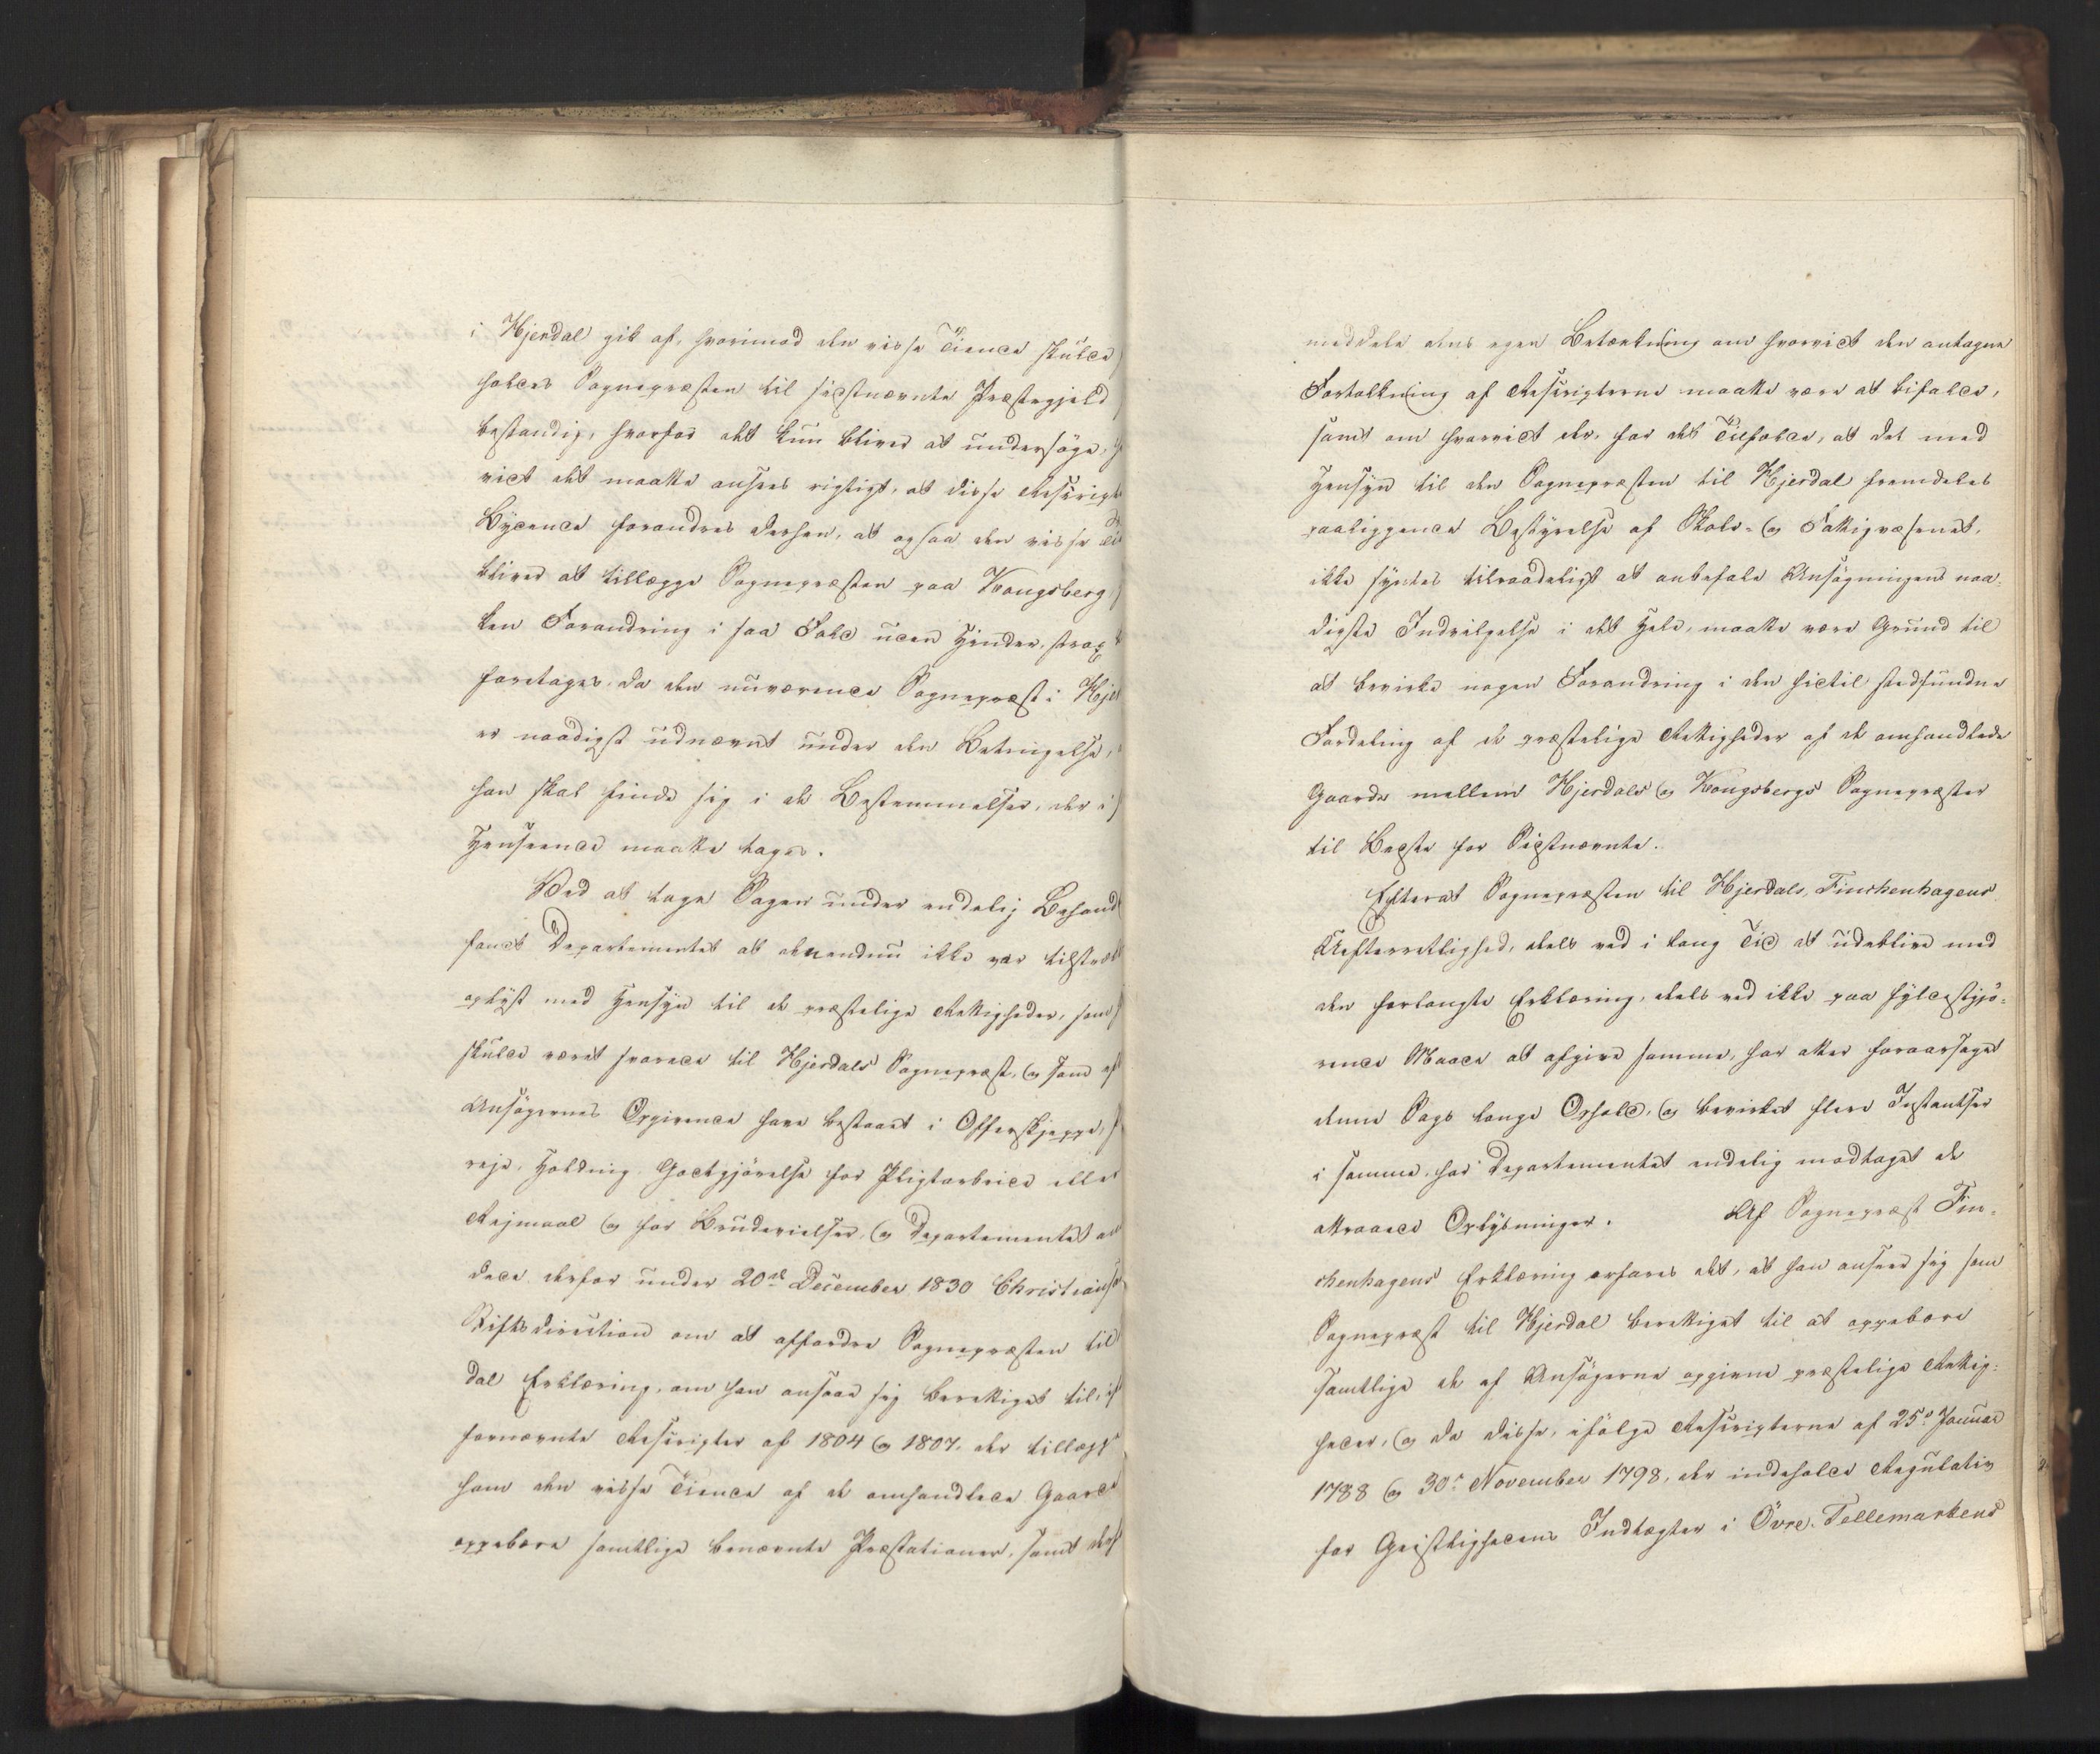 i Hjerdal gik af, hvorimod den visse Tiende skulde
holdes Sognepræsten til sidstnævnte Præstegjeld
bestandig, hvorfor det kun bliver at undersøge,
vidt det maatte ansees rigtigt, at disse Rescripters
Bydende forandres derhen, at ogsaa den visse
bliver at tillægge Sognepræsten paa Kongsberg,
ken Forandring i saa Fald uden Hinder, strax
foretages, da den nuværende Sognepræst i
er naadigst udnævnt under den Betingelse,
han skal finde sig i de Bestemmelser, der i
Henseende maatte tages.
Ved at tage Sagen under endelig
fandt Departementet at den endnu ikke var
oplyst med Hensyn til de præstelige Rettigheder, som
skulde været svarede til Hjerdals Sognepræst, og som
Ansøgernes Opgivende have bestaaet i Offerskjeppe,
reje, Holdning, Godtgjørelse for Pligtarbeide eller
Rejmaal og for Brudevielser, og Departementet
dede derfor under 20de December 1830
Stiftsdirection om at affordre Sognepræsten til
dal Erklæring, om han ansaae sig berettiget til,
fornævnte Rescripter af 1804 og 1807, der tillagde
ham den visse Tiende af de omhandlede Gaarde
oppebære samtlige benævnte Præstationer, samt
meddele dens egen Betænkning om hvorvidt den antagne
Fortolkning af Rescripterne maatte være at bifalde,
samt om hvorvidt der, for det Tilfælde, at det med
Hensyn til den Sognepræsten til Hjerdal fremdeles
paaliggende Bestyrelse af Skole- og Fattigvæsenet,
ikke syntes tilraadeligt at anbefale Ansøgningens naa-
digste Indvilgelse i det Hele, maatte være Grund til
at bevirke nogen Forandring i den hidtil stedfundne
Fordeling af de præstelige Rettigheder af de omhandlede
Gaarde mellem Hjerdals og Kongsbergs Sognepræster
til Bedste for Sidstnævnte.
Efterat Sognepræsten til Hjerdals, Finchenhagens
Uefterrettelighed, dels ved i lang Tid at udeblive med
den forlangte Erklæring, dels ved ikke paa fyldestgjø-
rende Maade at afgive samme, har atter foraarsaget
denne Sags lange Ophold, og bevirket flere Instantser
i samme, har Departementet endelig modtaget de
attraaede Oplysninger. Af Sognepræst Fin-
chenhagens Erklæring erfares det, at han anseer sig som
Sognepræst til Hjerdal berettiget til at oppebære
samtlige de af Ansøgerne opgivne præstelige Rettig-
heder, og da disse, ifølge Rescripterne af 25de Januar
1788 og 30te November 1798, der indeholde Regulativ
for Geistlighedens Indtægter i Övre-Tellemarkens